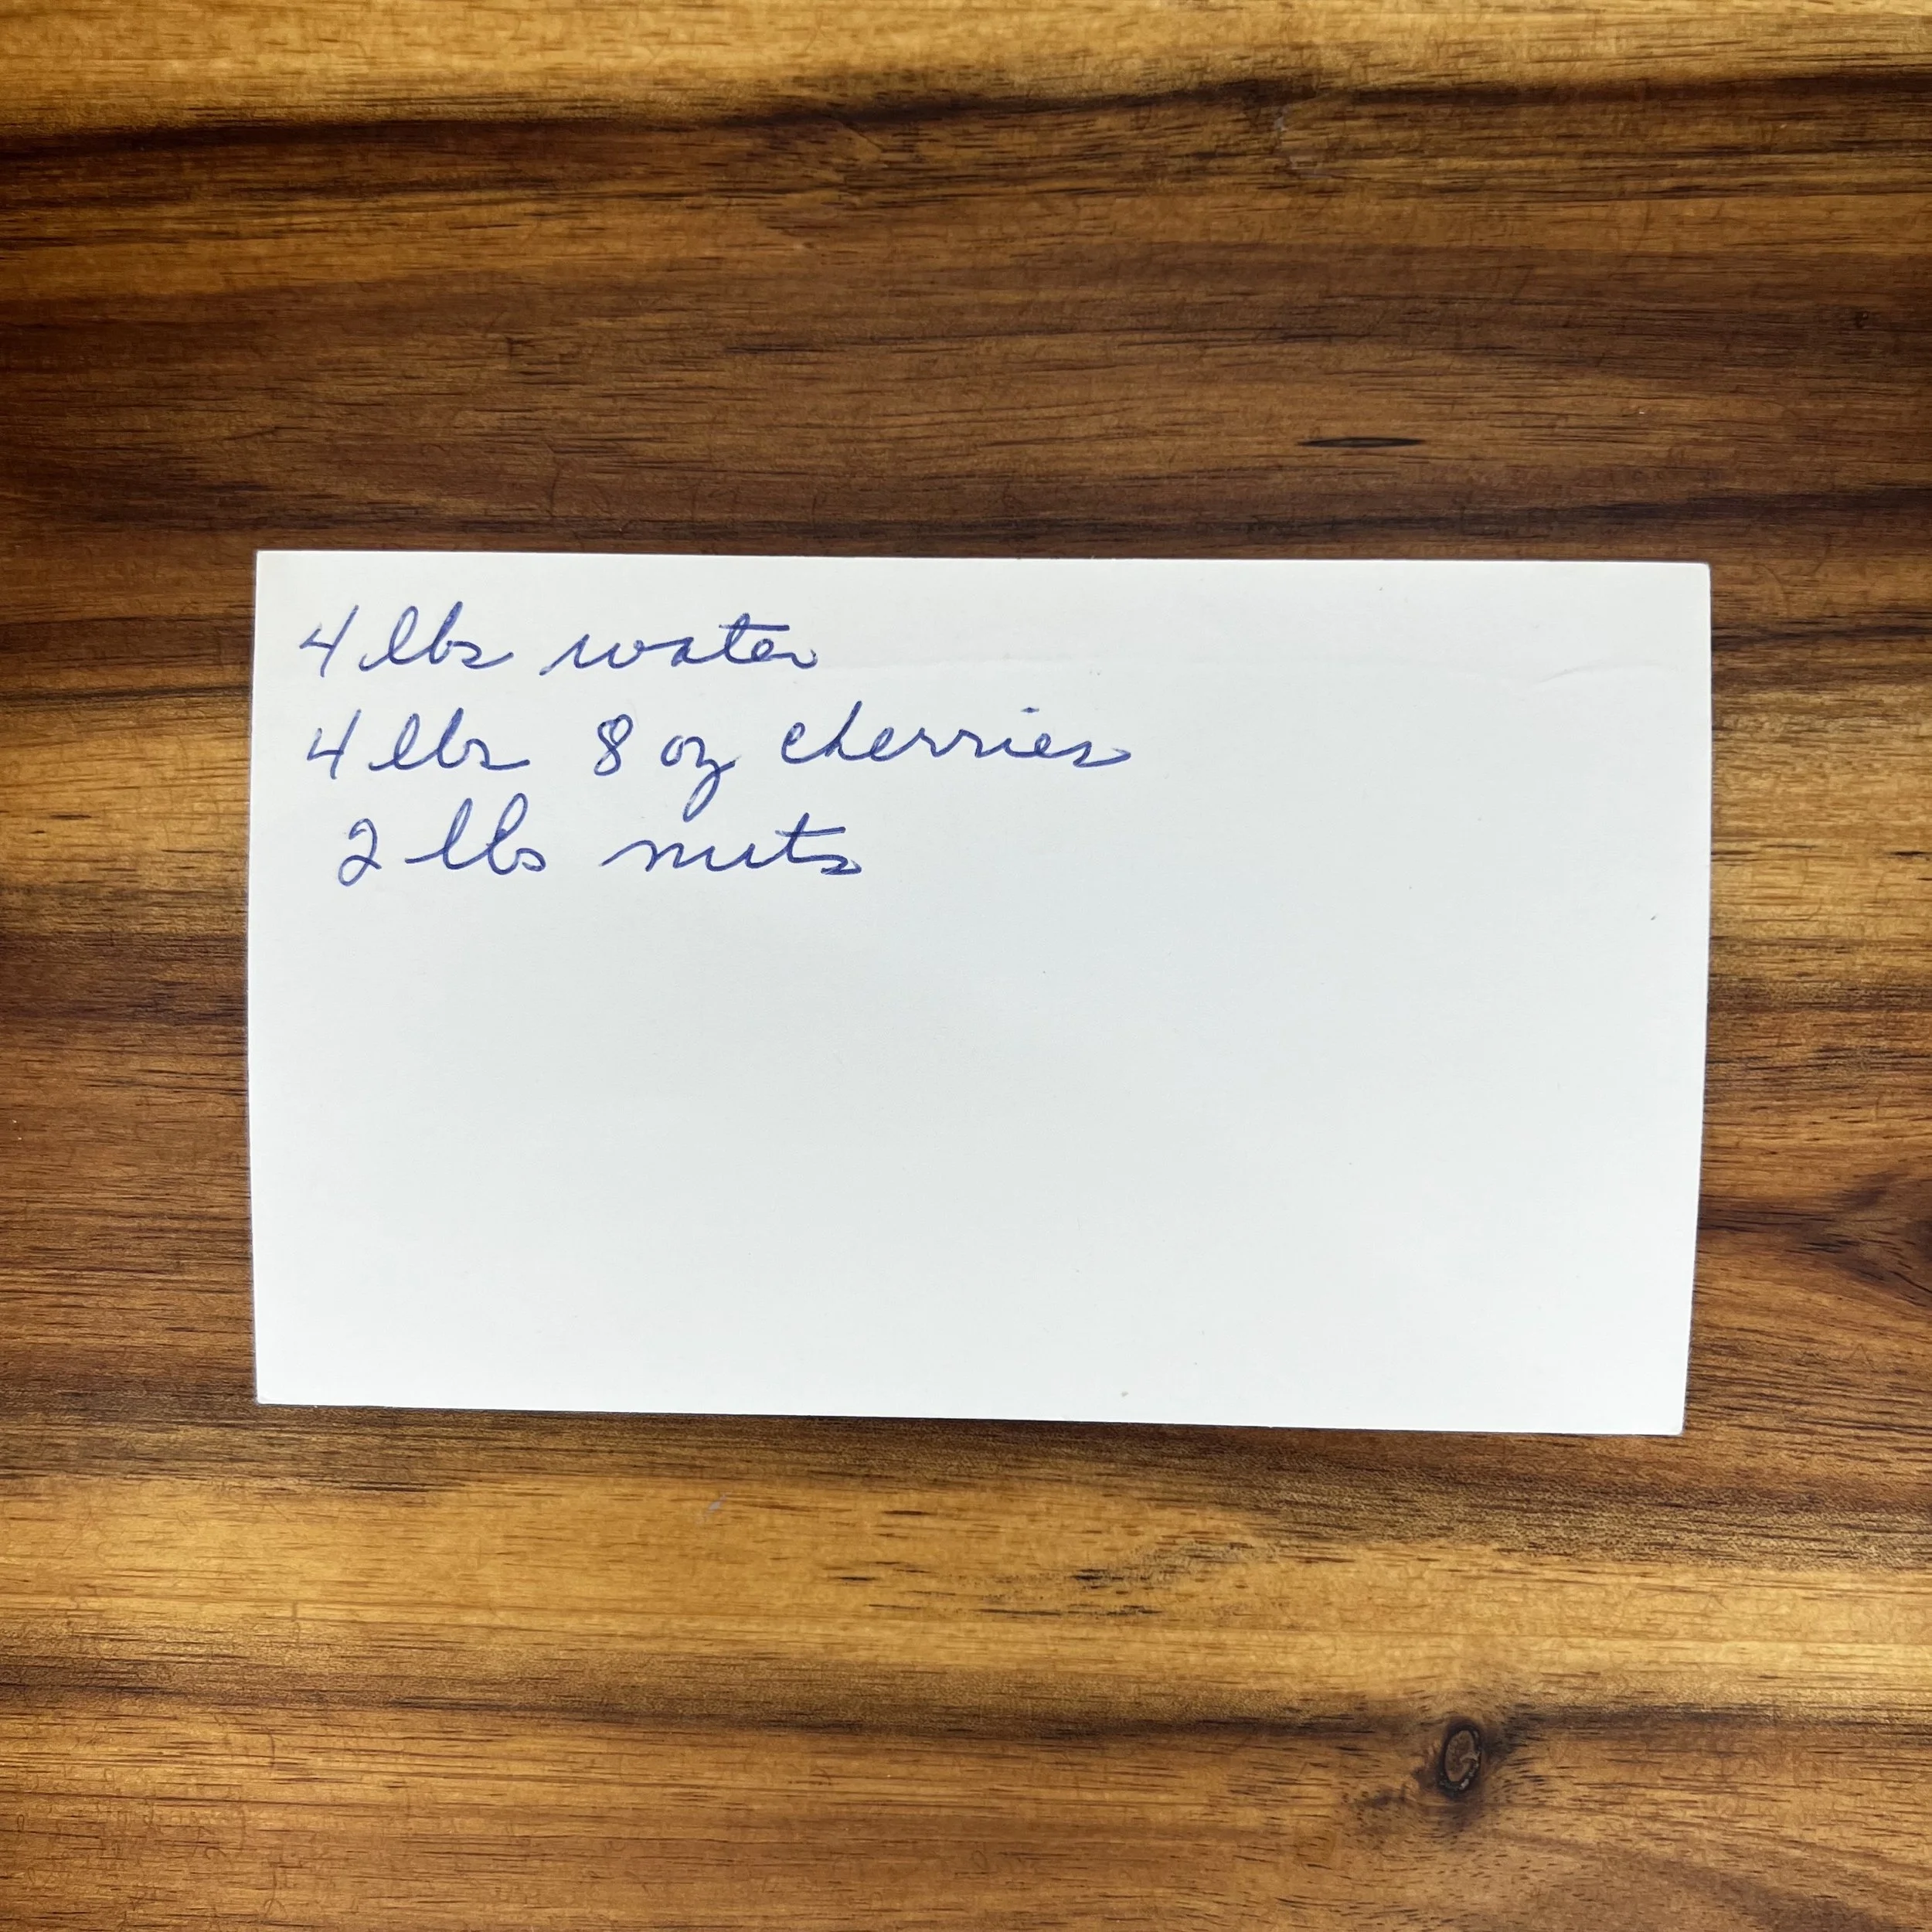 4 lbs water
4 lbs 8 oz cherries
2 lbs nuts